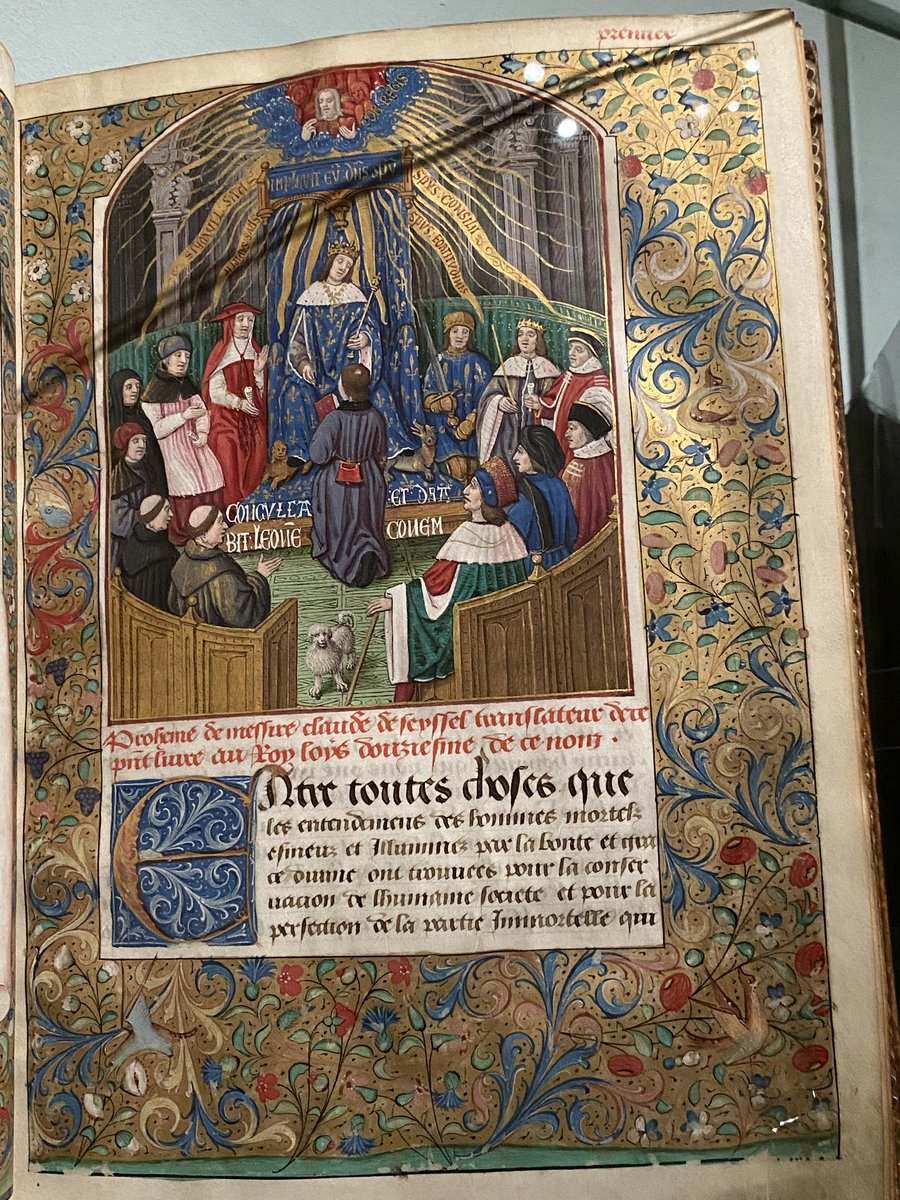 premier
REGIS
SPŪS CONSILII
SPŪS FORTITVDINIS
CONCVLCA ET DRA
BIT LEONĒ CONEM
Proheme de messire claude de seyssel translateur de ce
pn̄t livre au Roy loys douziesme de ce nom .
Entre toutes choses que
les entendemens des hommes mortelz
esmeuz et Illuminez par la bonte et gra
ce diuine ont trouuees pour la conser
uacion de lhumaine societe et pour la
perfection de la partie Immortelle qui